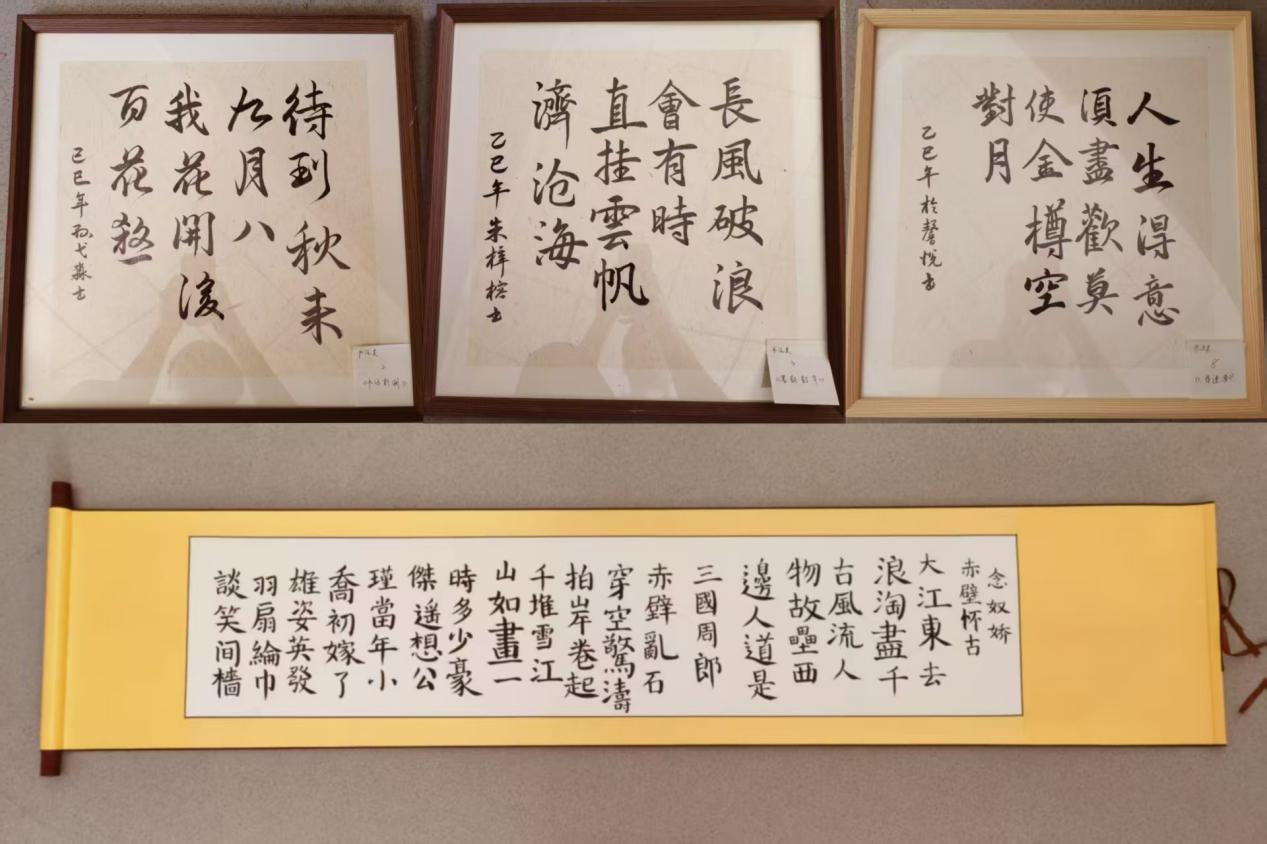 待到秋来
九月八
我花開後
百花煞
乙巳年孙弋淼书
長風破浪
會有時
直挂雲帆
濟沧海
乙巳年朱梓榕书
人生得意
須盡歡莫
使金樽空
對月
乙巳年於馨悦书
念奴娇
赤壁怀古
大江東去
浪淘盡千
古風流人
物故壘西
邊人道是
三國周郎
赤壁亂石
穿空驚濤
拍岸卷起
千堆雪江
山如畫一
時多少豪
傑遥想公
瑾當年小
喬初嫁了
雄姿英發
羽扇綸巾
談笑间檣